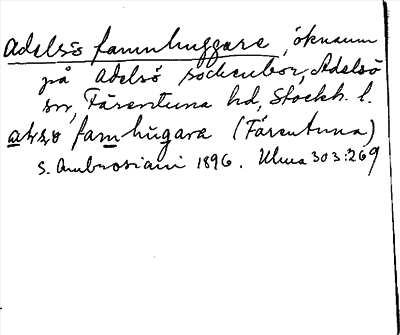 Adelsö famnhuggare, öknamn
på Adelsö sockenbor, Adelsö
sn, Färentuna hd, Stockh. l.
famhugara (Färentuna)
S. Ambrosiani 1896. Ulma 303:269